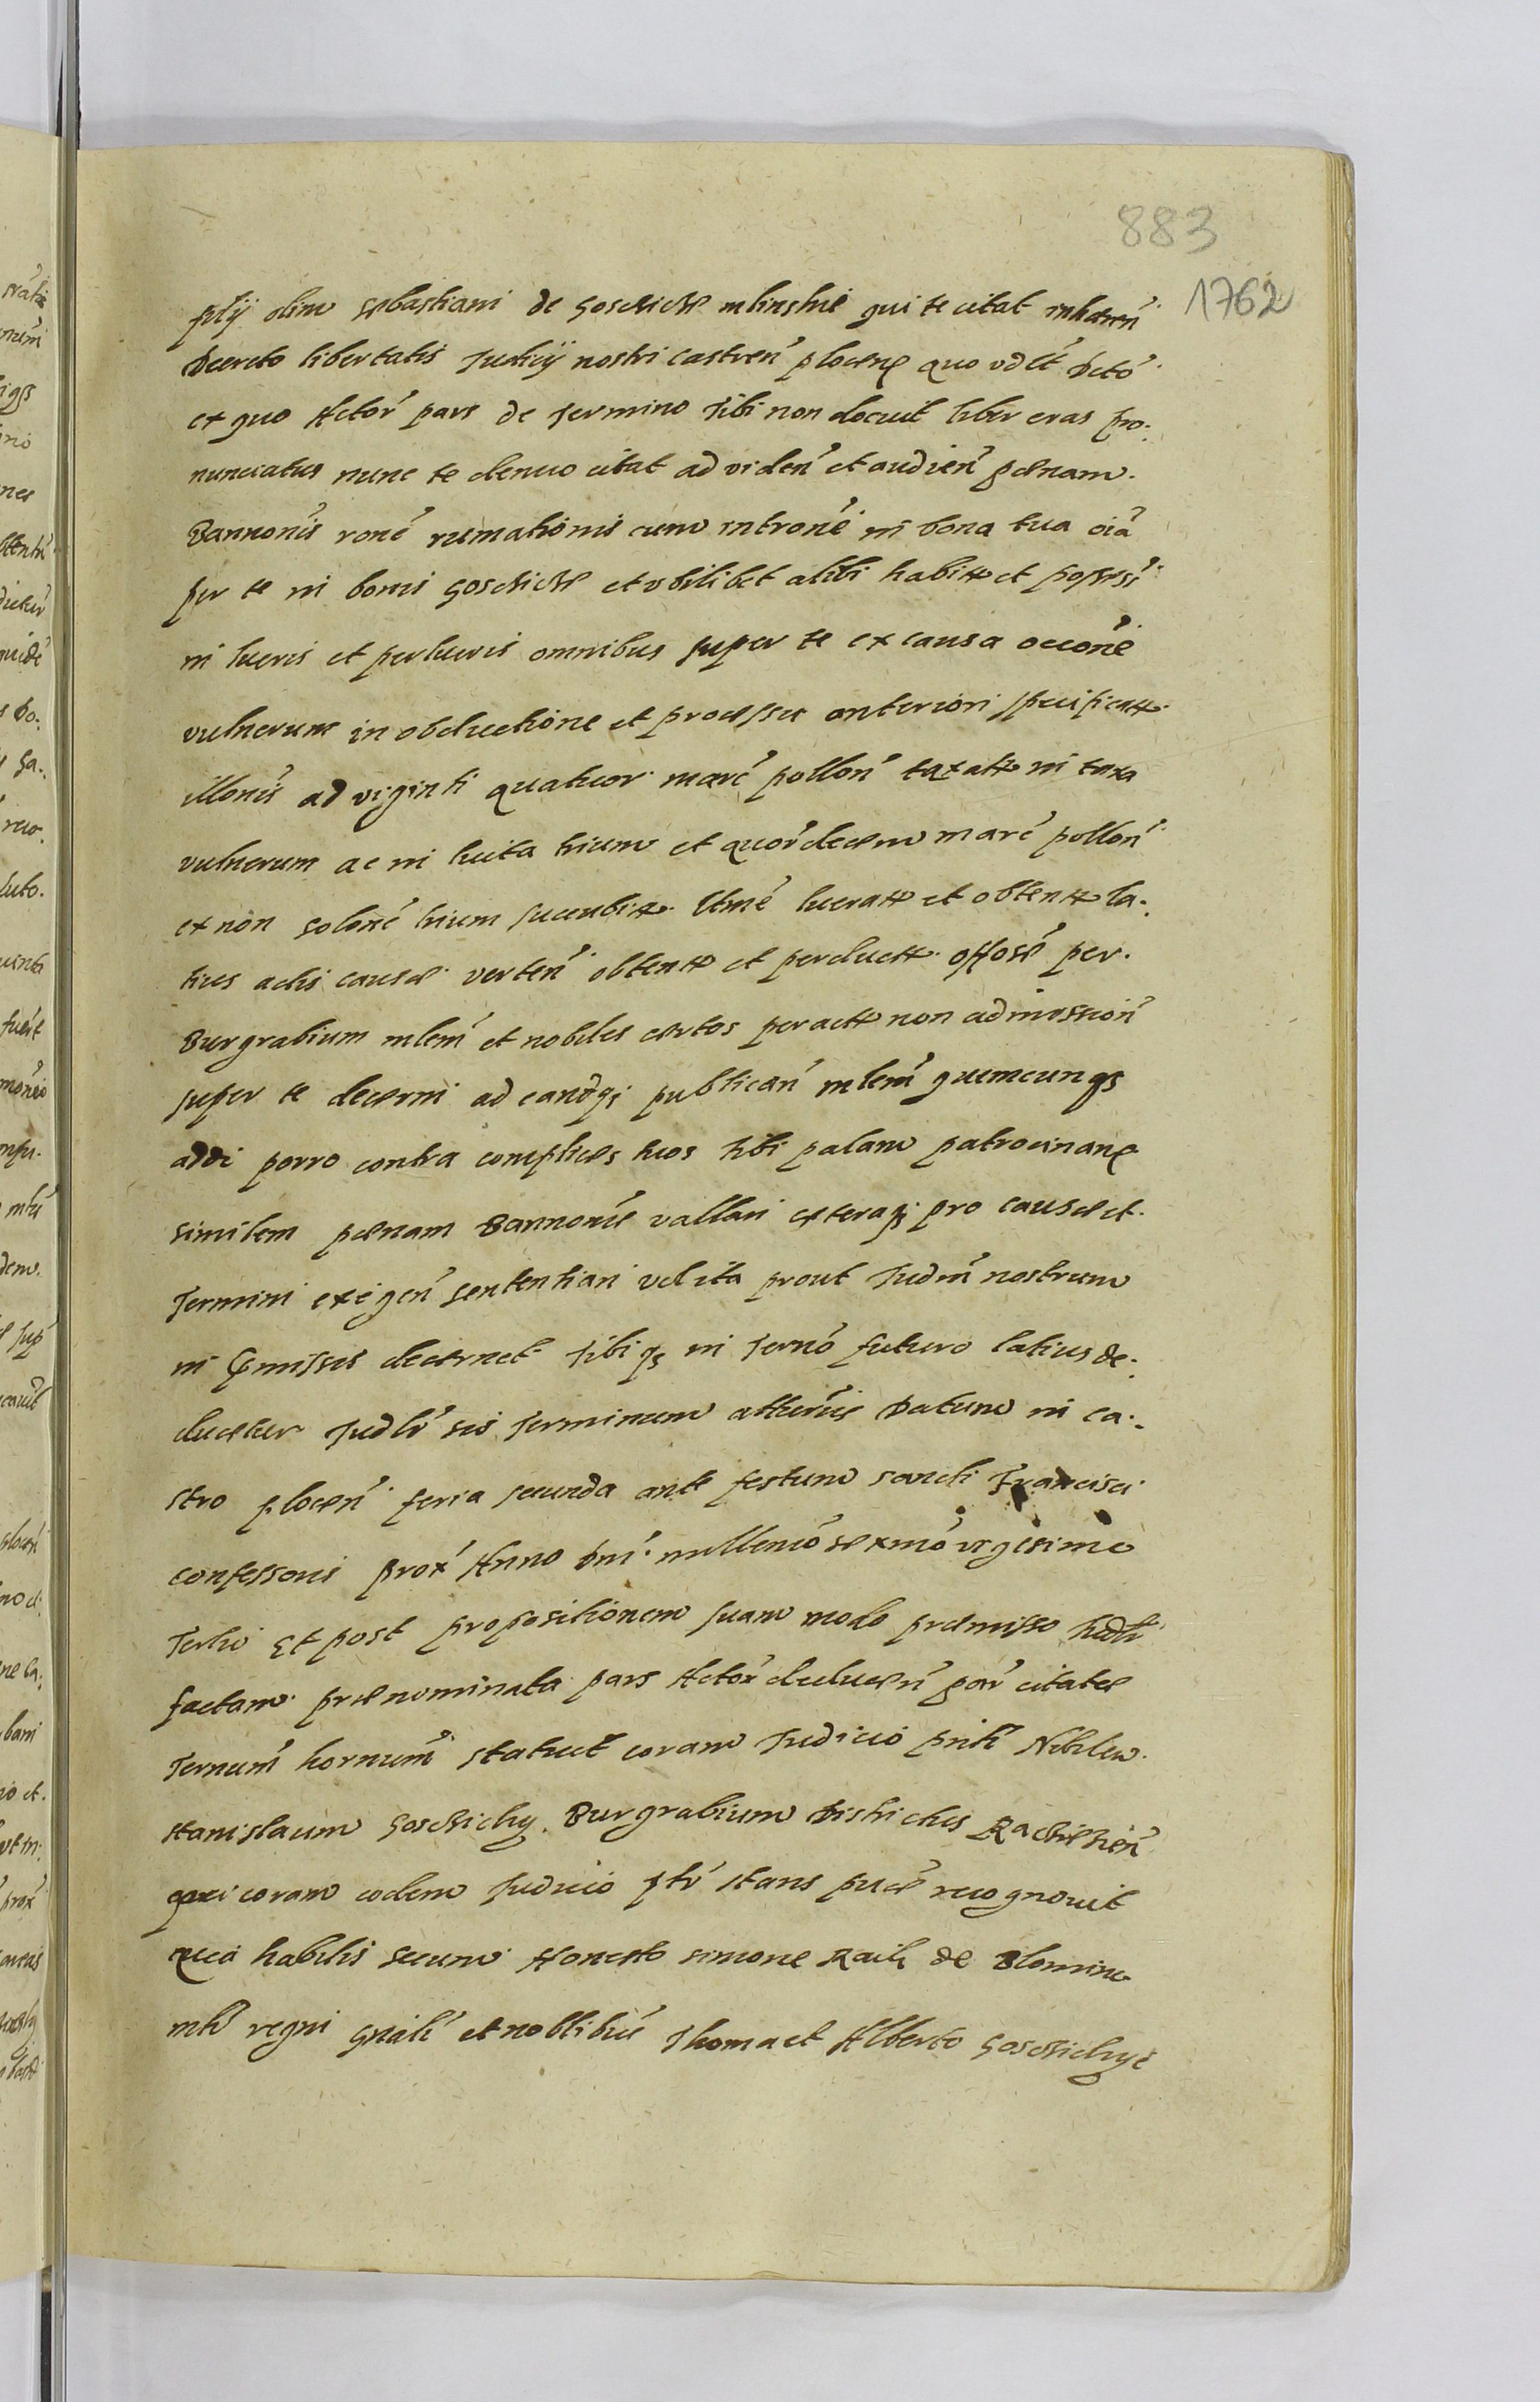 883
1762
filij olim Sebastiani de Goscicze mlinskie qui te citat inhæren̄
Decreto libertatis Judicij nostri castren̄ plocen̄ quo vdlt
ex quo Actor̄ pars de termino tibi non docuit liber eras pro:
nunciatus nunc te denuo citat ad viden̄ et audien̄ pænam.
Bannonis ronē rumationis cum intronē in bona tua oīa
per te in bonis Goscicze et vbilibet alibi habitt et possess̄
in lucris et perlucris omnibus super te ex causa
vulnerum in obductione et processu anteriori specificatt.
illorūs ad viginti quatuor marc̄ pollon̄ taxatt in taxa
vulnerum ac in luita trium et quor̄decem marc̄ pollon̄
ex non solonē trium succubitt. lucratt et obtentt la:
tius actis causæ verten̄ obtentt et perductt. per.
Burgrabium mlem̄ et nobiles certos peractt non admission̄
super te decerni ad eandq; publican̄ mlem̄ quemcunq;
addi porro contra complices tuos tibi palam patrocinan̄
similem pænam Bannonis vallari cæteraq; pro causæ et.
Termini exigen̄ sententiari vel ita prout Judm̄ nostrum
in p̄missis decernet tibiq; in termō futuro latius de:
ducetur Judlr̄ sis terminum Datum in ca:
stro plocen̄ feria secunda ante festum sancti Francisci
confessoris prox̄ Anno Dni millemō sexmō vigesimo
Tertio Et post propositionem suam modo præmisso
factam prænominata pars Actor̄ deducen̄ par̄ citatæ
Ternum̄ hornum̄ statuit coram Judicio pnti Nobilem.
Stanislaum Goscicky Burgrabium Districtus Raciazien̄
qui coram eodem Judicio pt̄r stans p̄uce recognouit
quia habitis secum Honesto simone Raik de Blomino
mli regni gn̄ali et nobllibus Thoma et Alberto Goscickys